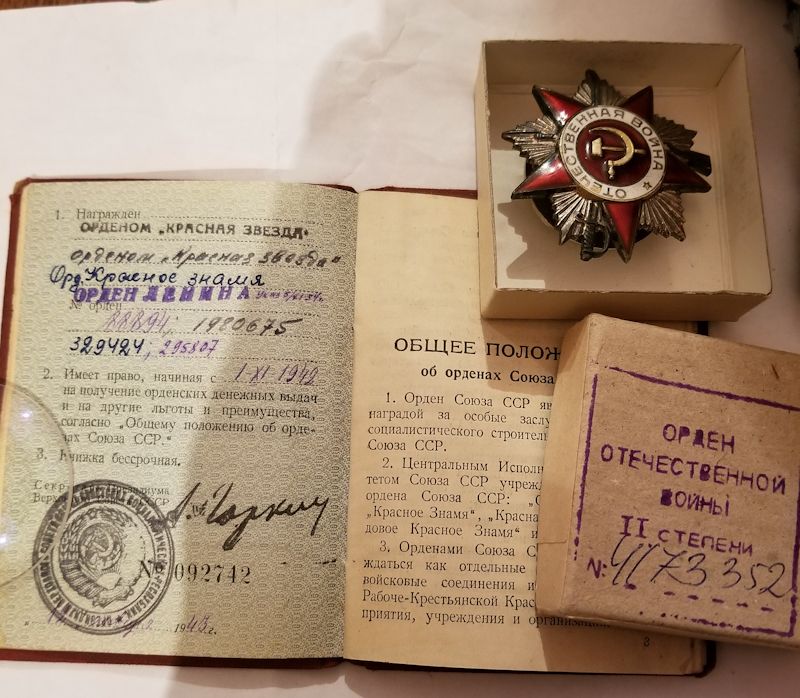 1. Награжден
ОРДЕНОМ „КРАСНАЯ ЗВЕЗДА"
орденом „Красная звезда"
Орд Красное знамя
ОРДЕН ЛЕНИНА
№ орден
1980675
329424, 295807
2. Имеет право, начиная с 1-XI-1942
на получение орденских денежных выдач
и на другие льготы и преимущества,
согласно „Общему положению об орде-
нах Союза ССР."
3. Книжка бессрочная.
А. Горкин
№ 092742
1943 г.
ОБЩЕЕ ПОЛОЖ
об орденах Союза
1. Орден Союза ССР яв
наградой за особые заслу
социалистического строитель
Союза ССР.
2. Центральным Исполн
тетом Союза ССР учрежд
ордена Союза ССР:
„Красное Знамя", „Красна
довое Красное Знамя" и
3. Орденами Союза С
ждаться как отдельные
войсковые соединения и
Рабоче-Крестьянской Крас
приятия, учреждения и организации
3
ОТЕЧЕСТВЕННАЯ ВОЙНА
ОРДЕН
ОТЕЧЕСТВЕННОЙ
ВОЙНЫ
II СТЕПЕНИ
№ 4173352